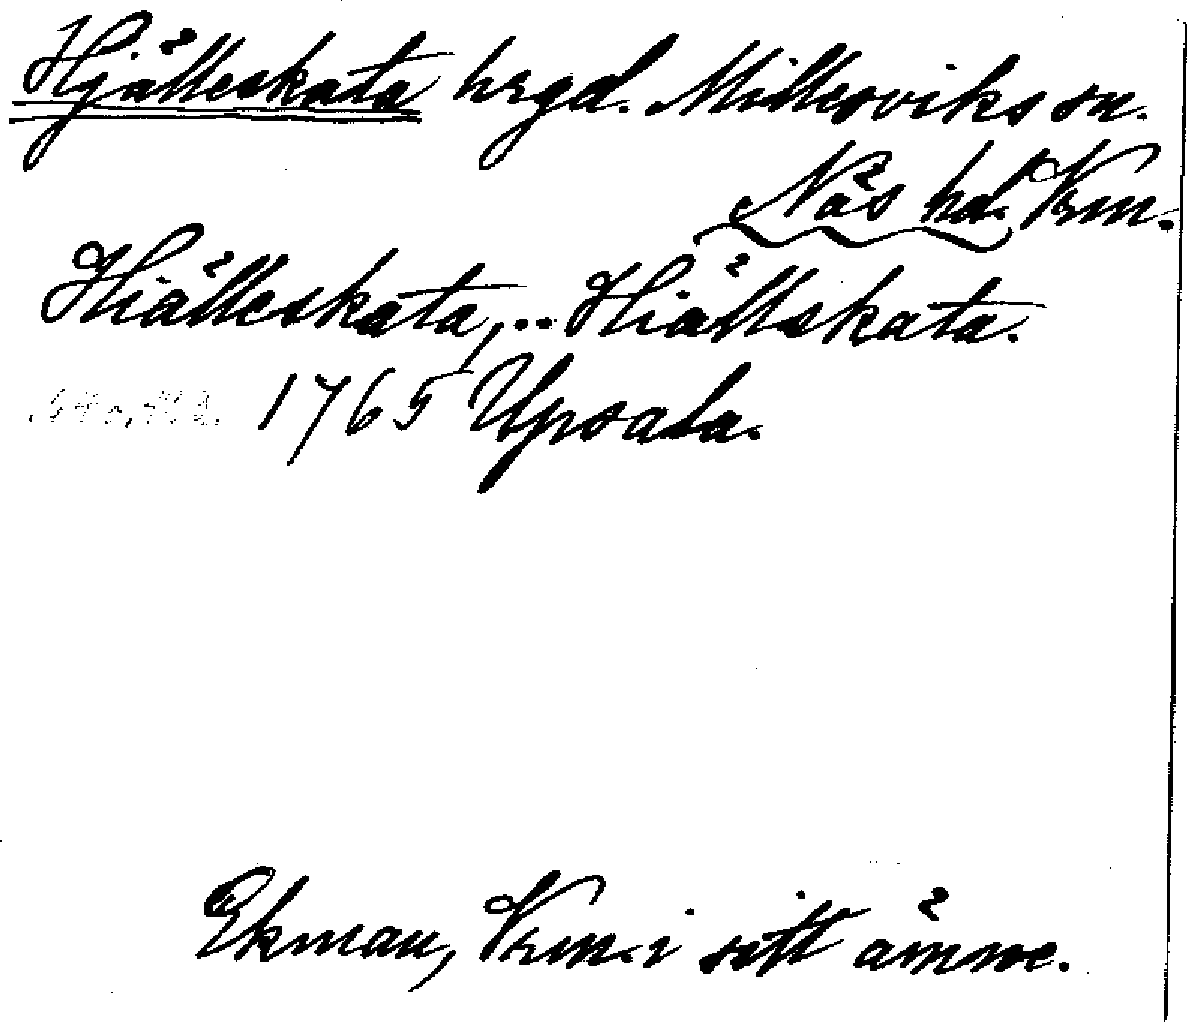 Hjälleskata hrgd. Millesviks sn.
Näs hd. Vrm.
Hiälleskata, .. Hiällskata.
1765 Upsala.
Ekman, Vrm. i sitt ämne.